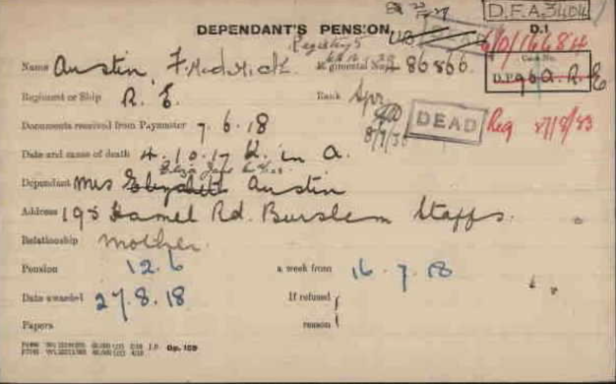 D.F.A. 3404
DEPENDANT'S PENSION.
D.I
6/D/16684
Registry 5
Name Austin, Frederick Regimental No. 86866. Case No.
Regiment or Ship R. E. Rank Spr
Documents received from Paymaster 7. 6. 18
DEAD Reg
Date and cause of death 4. 10. 17 K. in A.
Dependant Mrs Elizabeth Austin
Address 195 Hamel Rd. Burslem Staffs.
Relationship mother.
Pension 12.6 a week from 16. 7. 18
Date awarded 27. 8. 18 If refused
Papers reason
Gp. 109